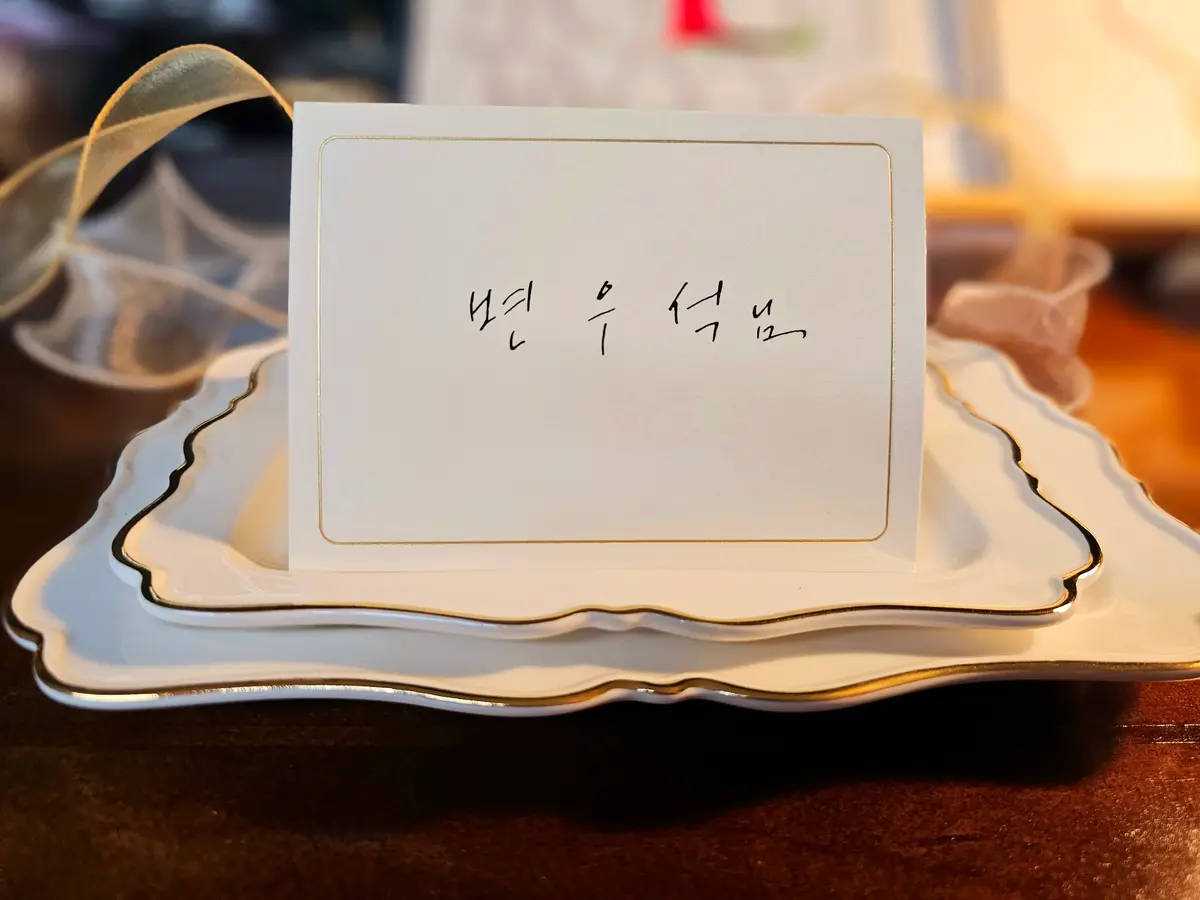 변 우 석 님